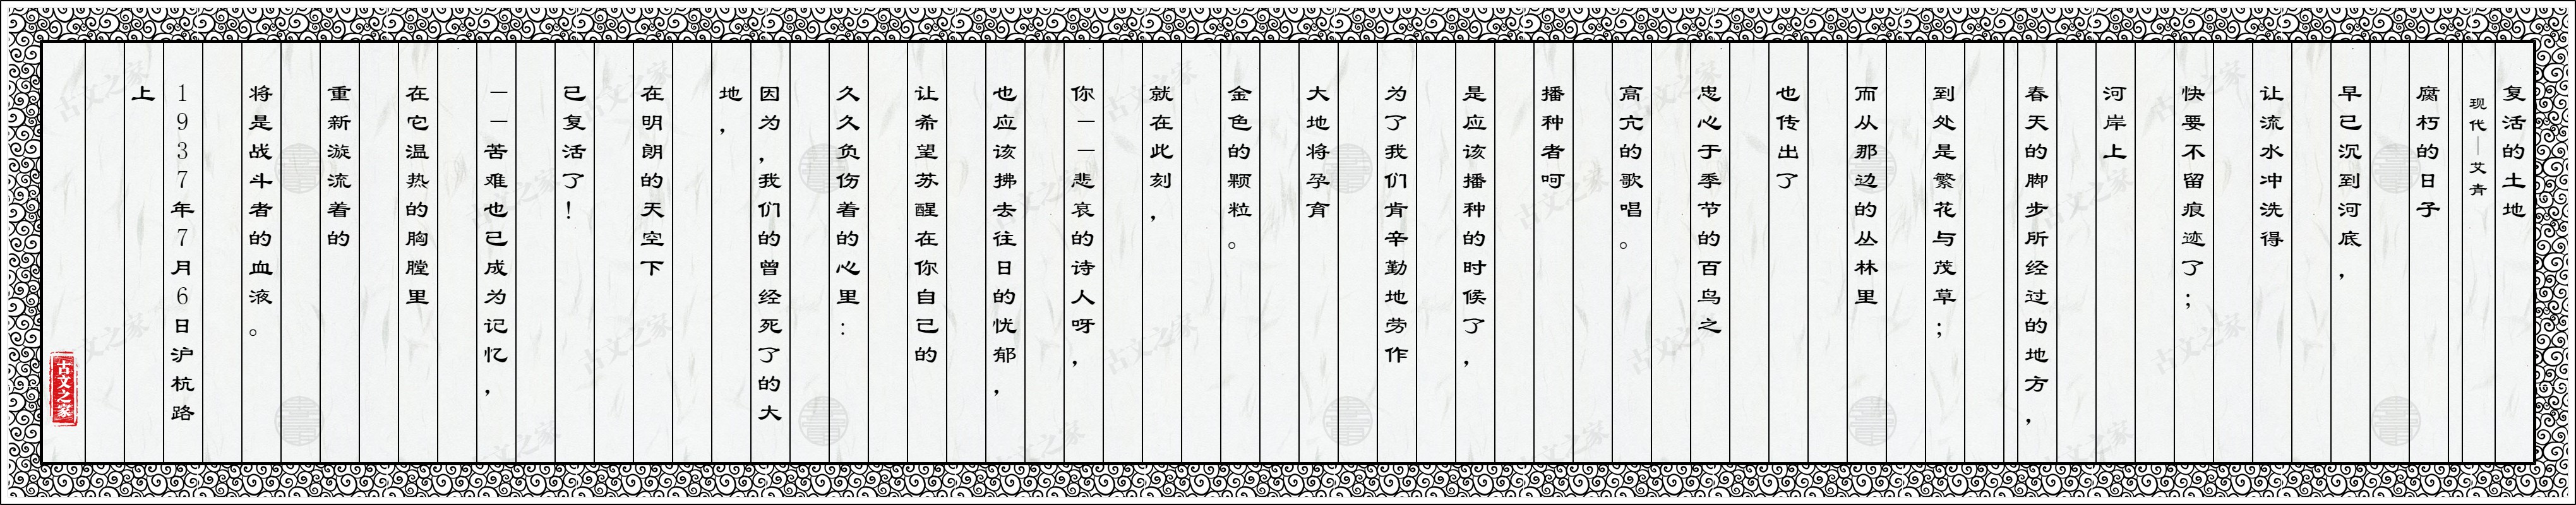 复活的土地
现代—艾青
腐朽的日子
早已沉到河底，
让流水冲洗得
快要不留痕迹了；
河岸上
春天的脚步所经过的地方，
到处是繁花与茂草；
而从那边的丛林里
也传出了
忠心于季节的百鸟之
高亢的歌唱。
播种者呵
是应该播种的时候了，
为了我们肯辛勤地劳作
大地将孕育
金色的颗粒。
就在此刻，
你——悲哀的诗人呀，
也应该拂去往日的忧郁，
让希望苏醒在你自己的
久久负伤着的心里：
因为，我们的曾经死了的大
地，
在明朗的天空下
已复活了！
——苦难也已成为记忆，
在它温热的胸膛里
重新漩流着的
将是战斗者的血液。
1937年7月6日沪杭路
上
古文之家